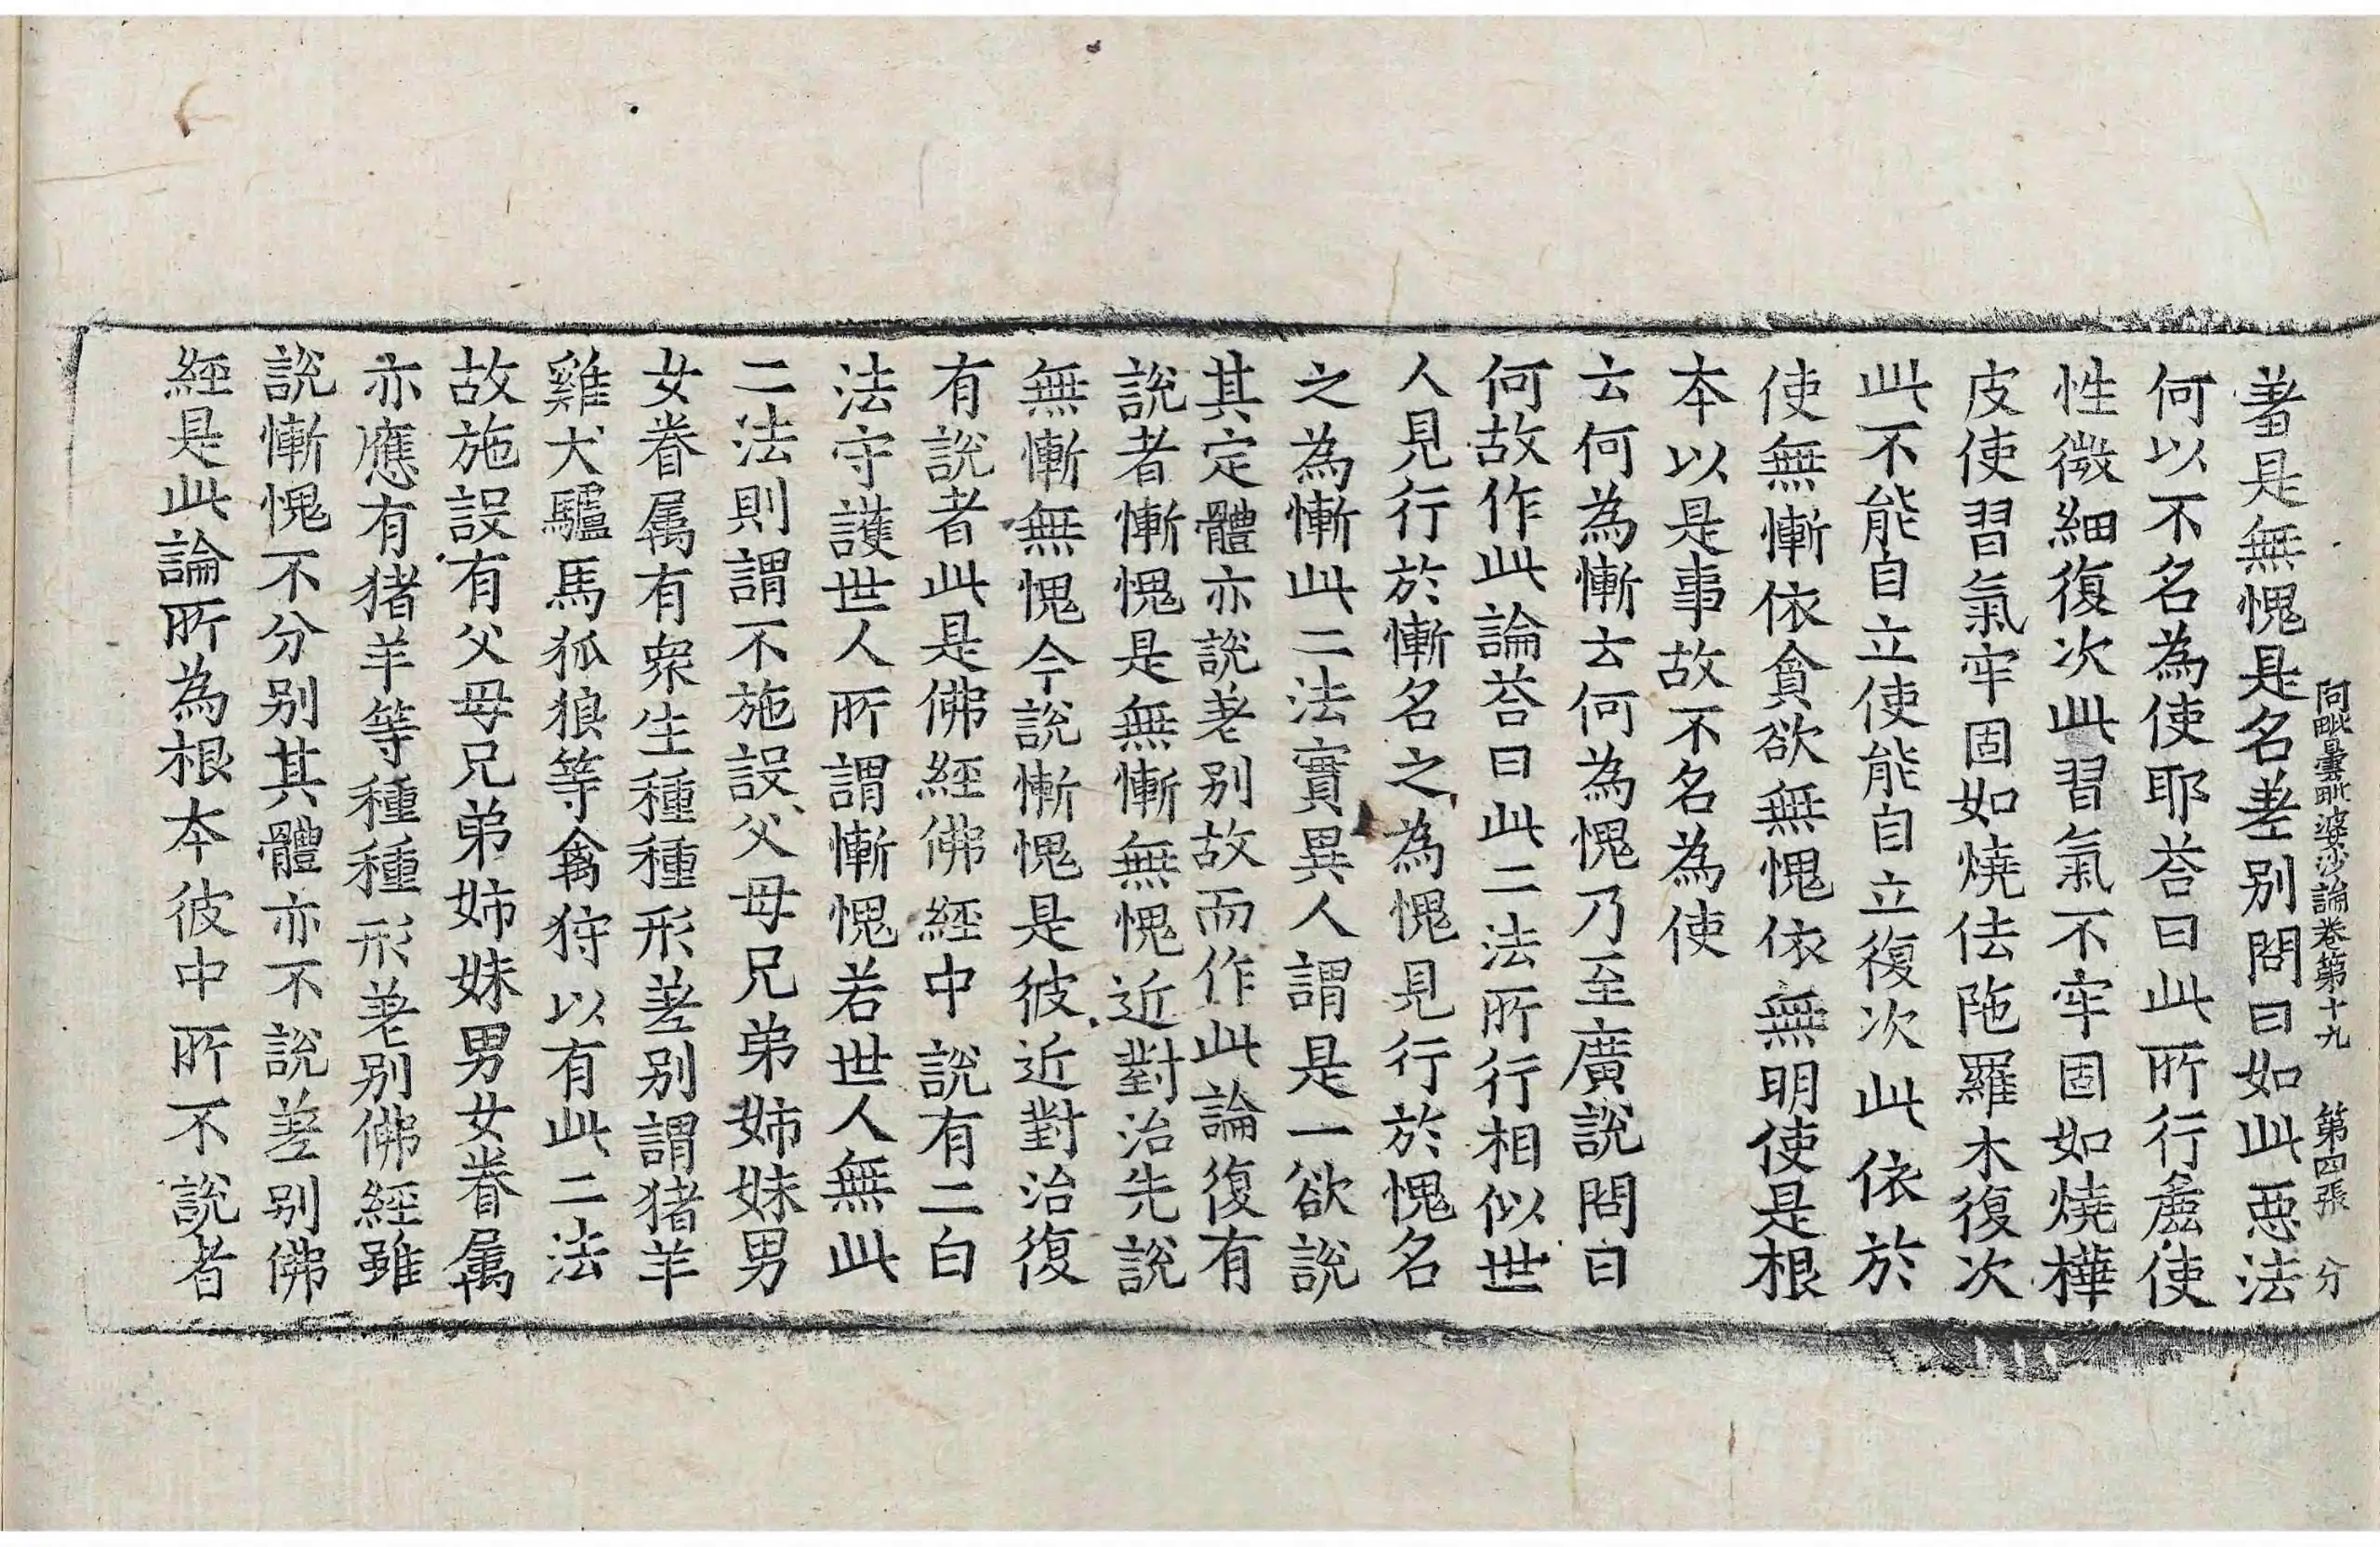 阿毗曇毗婆沙論卷第十九　第四張　分
著是無愧是名差别問曰如此惡法
何以不名為使耶荅曰此所行麁使
性微細復次此習氣不牢固如燒樺
皮使習氣牢固如燒佉陁羅木復次
此不能自立使能自立復次此依於
使無慚依貪欲無愧依無明使是根
本以是事故不名為使
云何為慚云何為愧乃至廣說問曰
何故作此論荅曰此二法所行相似世
人見行於慚名之為愧見行於愧名
之為慚此二法實異人謂是一欲說
其定體亦說差别故而作此論復有
說者慚愧是無慚無愧近對治先說
無慚無愧今說慚愧是彼近對治復
有說者此是佛經佛經中說有二白
法守護世人所謂慚愧若世人無此
二法則謂不施設父母兄弟姉妹男
女眷属有衆生種種形差别謂猪羊
雞犬驢馬狐狼等禽狩以有此二法
故施設有父母兄弟姉妹男女眷属
亦應有猪羊等種種形差别佛經雖
說慚愧不分别其體亦不說差别佛
經是此論所為根本彼中所不說者